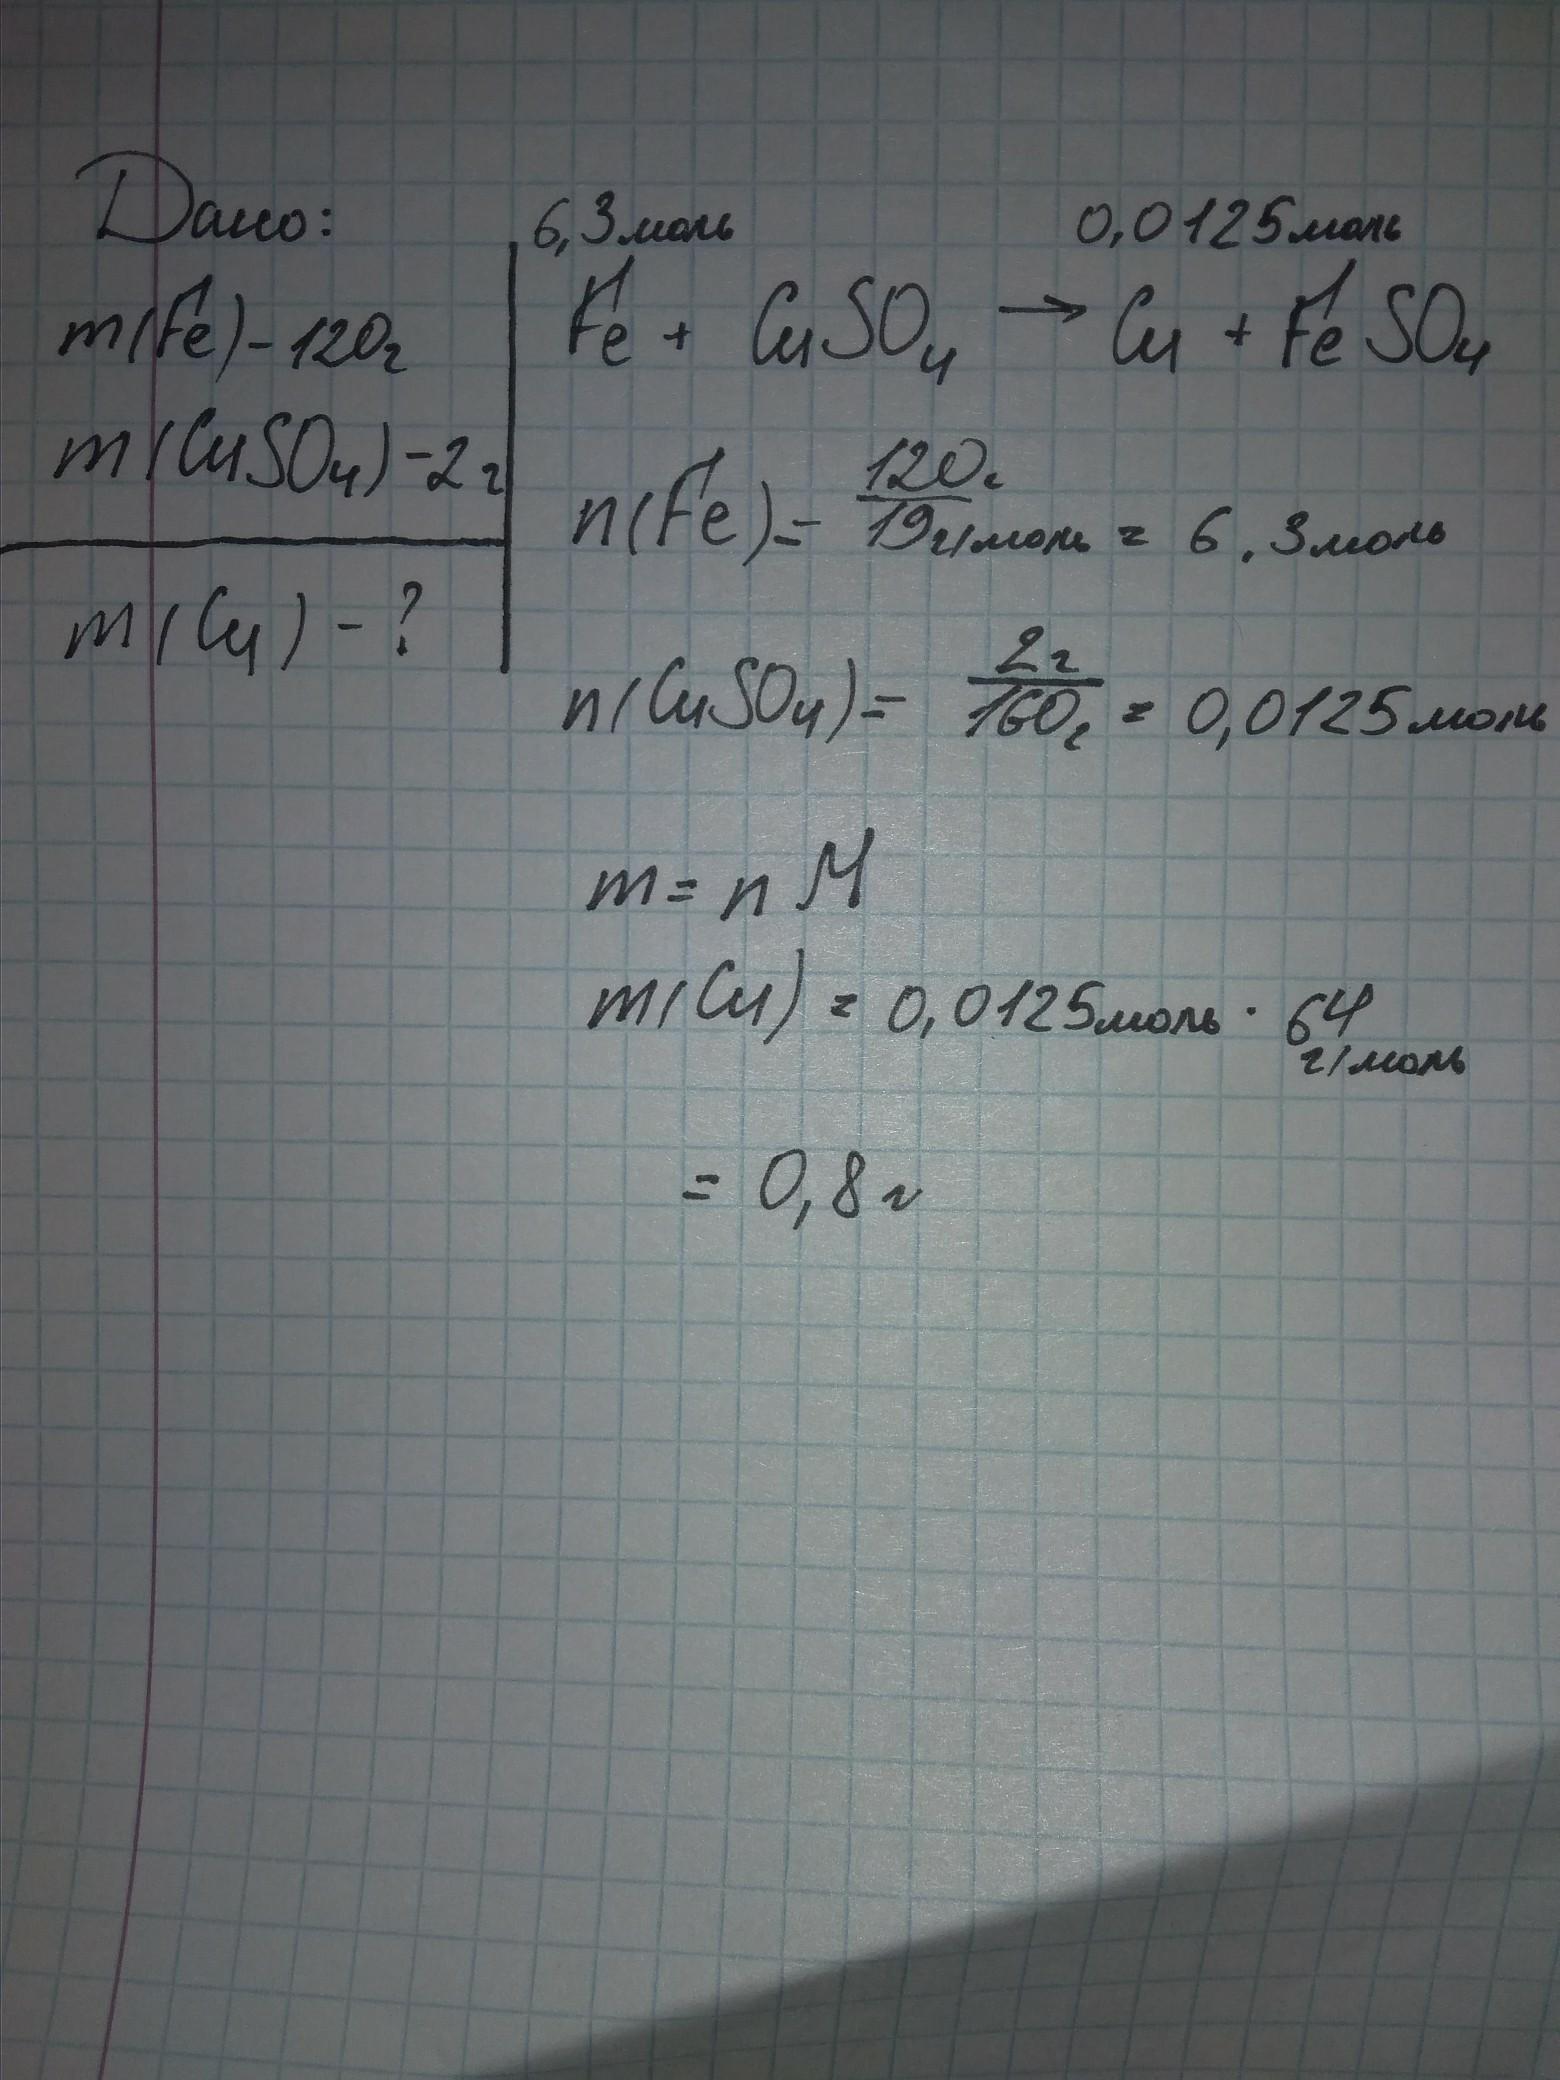 Дано:
m(Fe) - 120г
m(CuSO4) - 2г
m(Cu) - ?
6,3моль 0,0125моль
Fe + CuSO4 → Cu + FeSO4
n(Fe) = 120г / 19г/моль = 6,3моль
n(CuSO4) = 2г / 160г = 0,0125моль
m = n M
m(Cu) = 0,0125моль · 64 г/моль
= 0,8г